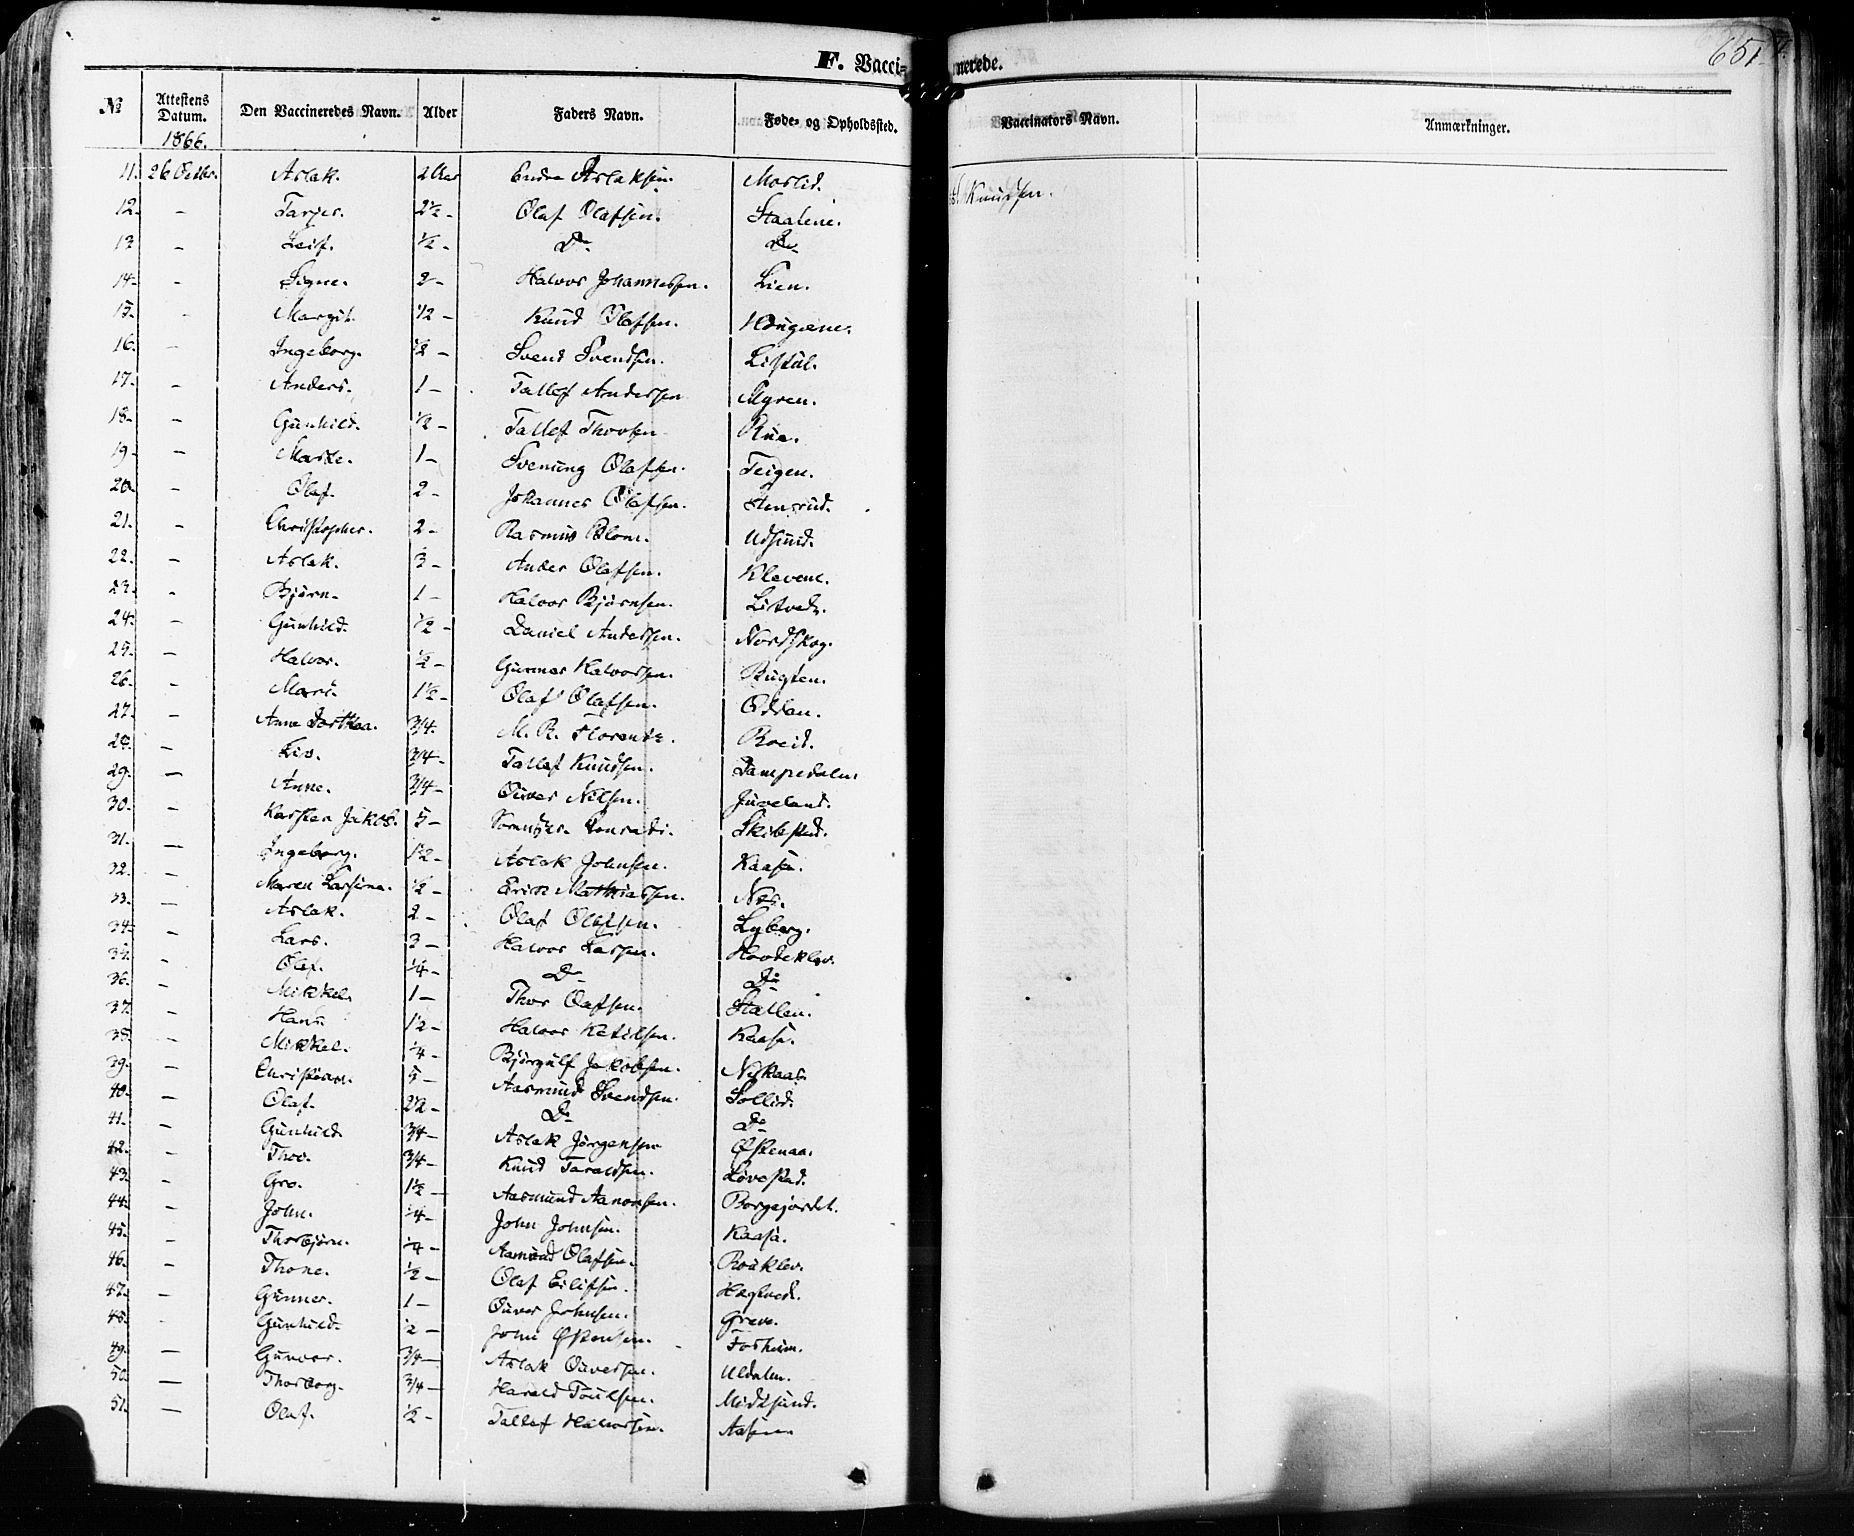 F. Vacci- nerede. 651
No Attestens Datum. Den Vaccineredes Navn. Alder Faders Navn. Føde- og Opholdssted. Vaccinators Navn. Anmærkninger.
1866.
11. 26 Octbr. Aslak. 2 Aar Endre Aslaksen. Moslid. Knudsen.
12. - Tarjer. 2½ - Olaf Olafsen. Staalene.
13 - Leif. ½ - Do Do
14 - Signe. 2 - Halvor Johannessen. Lien.
15. - Margit. 1/2 - Knud Olafsen. Haugene.
16. - Ingeborg. ½ - Svend Svendsen. Listul.
17. - Anders. 1 - Tallef Andersen Myren.
18. - Gunhild. ½ - Tallef Thovsen Rua.
19 - Marte. 1 - Svenung Olafsen. Teigen.
20. - Olaf. 2 - Johannes Olafsen. Stensrud.
21. - Christopher. 2 - Rasmus Blom. Udsund.
22. - Aslak. 3 - Ander Olafsen. Klevene.
23. - Bjørn - 1 - Halvor Bjørnsen. Litvedt.
24. - Gunhild. ½ - Daniel Andersen. Nordskog.
25. - Halvor. ½ - Gunnar Halvorsen. Bugten.
26. - Mari. 1½ - Olaf Olafsen. Oddan.
27. - Anne Dorthea. 3/4. M. R. Florentz. Roeid.
28. - Liv. 3/4 - Tallef Knudsen. Dampedalen
29. - Anne. 3/4 - Ouver Nilsen. Juveland.
30. - Karsten Jakob. 5 - Conradi. Skibsted.
31. - Ingeborg. 1½ - Aslak Johnsen. Kaasa.
32. - Maren Larsine. ½ - Erik Mathiassen. Næs.
33. - Aslak. 2 - Olaf Olafsen. Lyberg.
34. - Lars. 3 - Halvor Larsen. Hovdeklev.
35. - Olaf. ¼ - Do Do
36. - Mikkel. 1 - Thor Olafsen. Stallen.
37. - Hans. 1½ - Halvor Ketilsen. Kaasa.
38. - Mikkel. ¼ - Bjørgulf Jakobsen. Nykaas.
39. - Christian. 5 - Aasmund Svendsen. Sollid.
40. - Olaf. 2½ - Do Do
41. - Gunhild. 3/4 - Aslak Jørgensen Østenaa.
42. - Thov. 3/4 - Knud Taraldsen. Løvestad.
43. - Gro. 1½ - Aasmund Aanonsen. Borgejordet.
44. - John. ¼ - John Johnsen. Kaasa.
45. - Thorbjørn. ¼ - Aamund Olafsen. Rouklev.
46. - Thone. ½ - Olaf Eilifsen. Hegtvedt.
47. - Gunner. 1 - Ouver Johnsen. Greve.
48. - Gunhild. ½ - John Østensen. Forheim.
49. - Gunvor. 3/4 - Aslak Ouversen. Uldalen.
50. - Thorborg. 3/4 - Harald Poulsen. Midtsund.
51. - Olaf. ½ - Tallef Halvorsen. Aasen